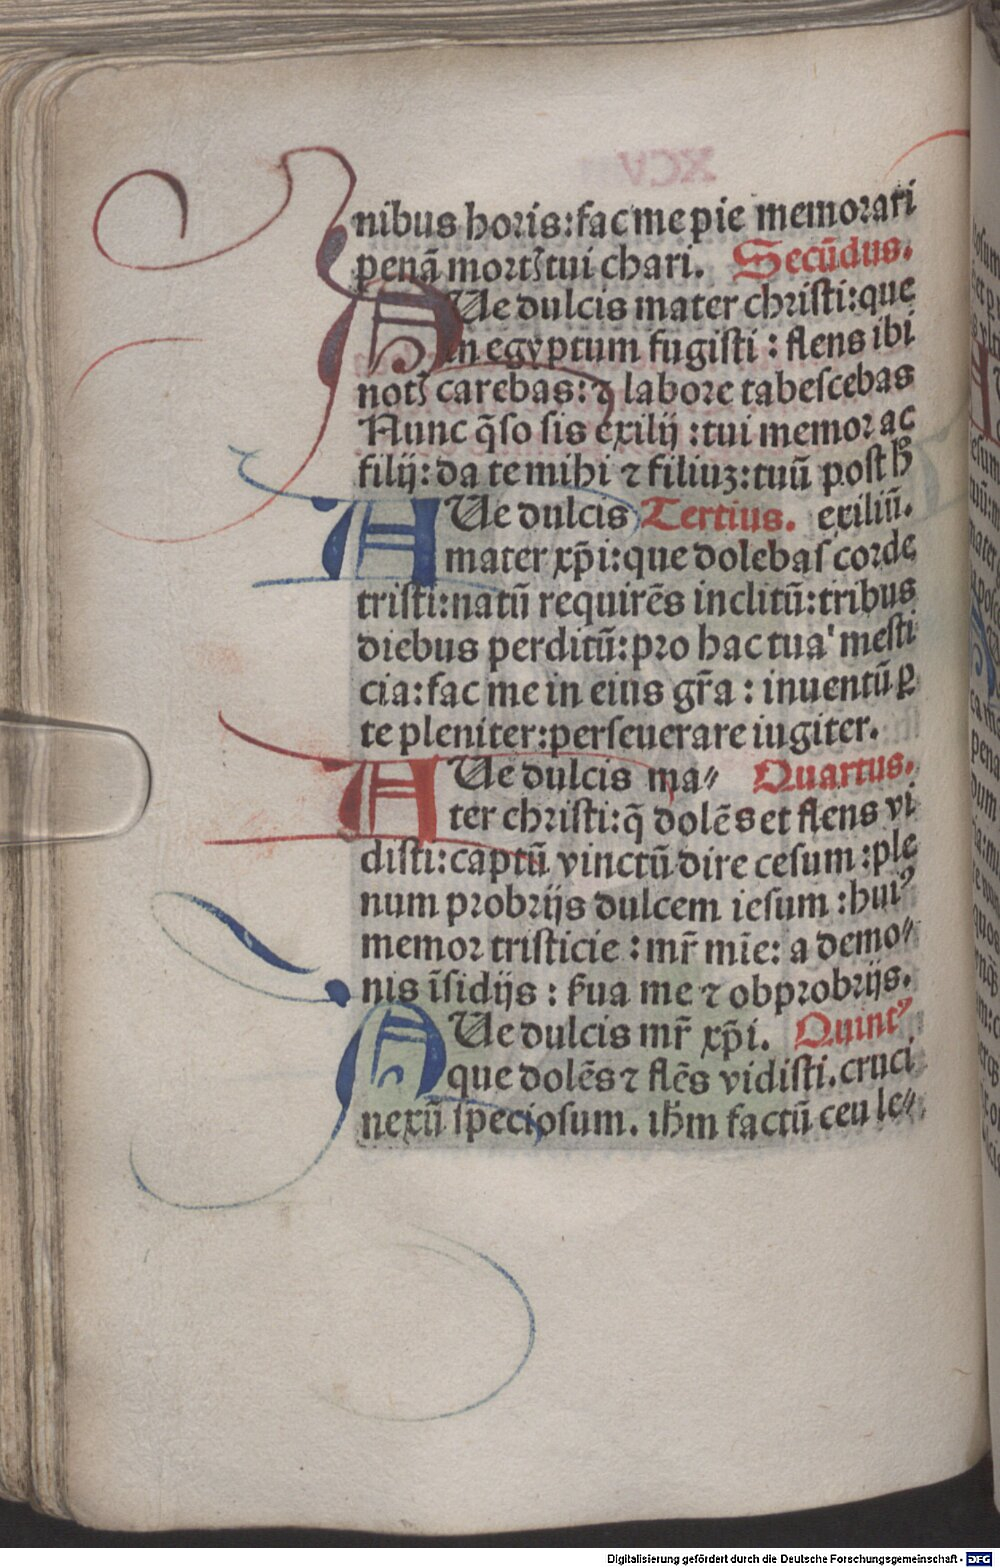 nibus horis:fac me pie memorari
penā mortꝭ tui chari. Secūdus.
AUe dulcis mater christi:que
in egyptum fugisti : flens ibi
notꝭ carebas: ⁊ labore tabescebas
Nunc q̄so sis exilij :tui memor ac
filij: da te mihi ⁊ filiuꝫ: tuū post h̄
AUe dulcis Tertius. exiliū.
mater xp̄i: que dolebas corde
tristi:natū requirēs inclitū:tribus
diebus perditū: pro hac tua mesti
cia: fac me in eius gr̄a : inuentū ꝑ
te pleniter:perseuerare iugiter.
AUe dulcis ma⸗ Quartus.
ter christi: q̄ dolēs et flens vi
disti: captū vinctū dire cesum :ple
num probrijs dulcem iesum : huiꝰ
memor tristicie : mr̄ mīe: a demo⸗
nis īsidijs : ẜua me ⁊ obprobrijs.
AUe dulcis mr̄ xp̄i. Quintꝰ
que dolēs ⁊ flēs vidisti. cruci
nexū speciosum. ih̄m factū ceu le⸗
Digitalisierung gefördert durch die Deutsche Forschungsgemeinschaft - DFG